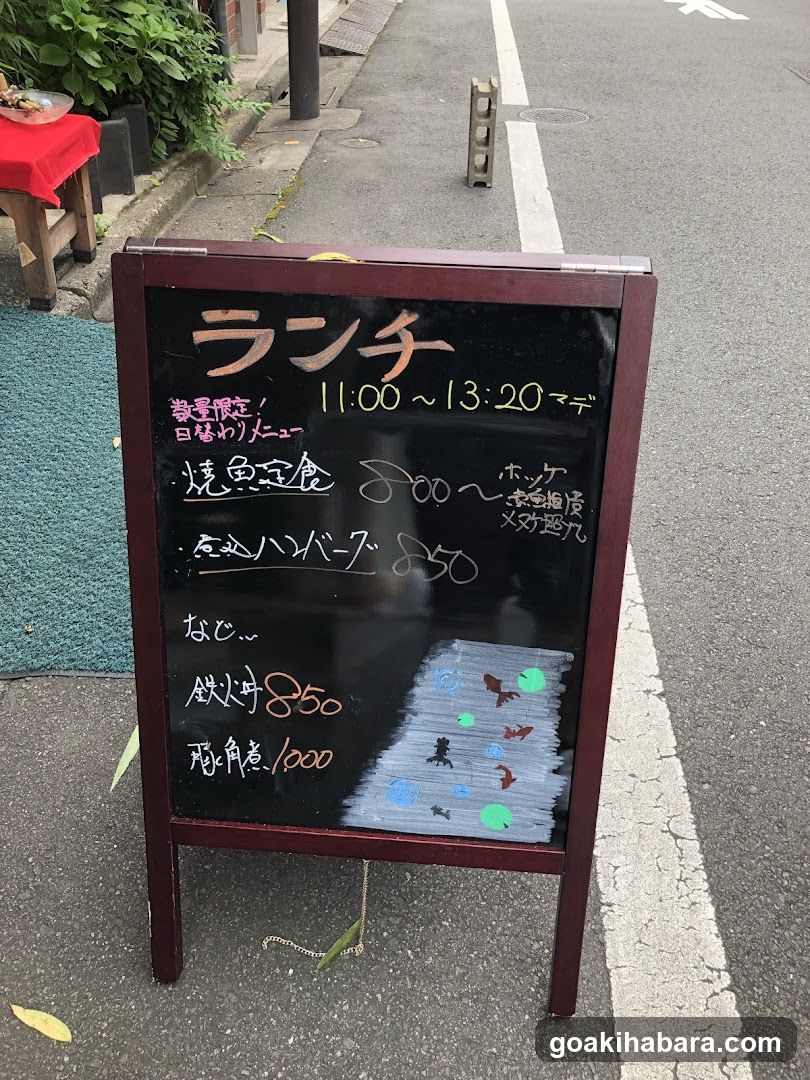 ランチ
11:00〜13:20マデ
数量限定!
日替わりメニュー
・焼魚定食 800〜
ホッケ
赤魚粕漬
メヌケ
・煮込ハンバーグ 850
など...
鉄火丼 850
豚角煮 1,000
goakihabara.com